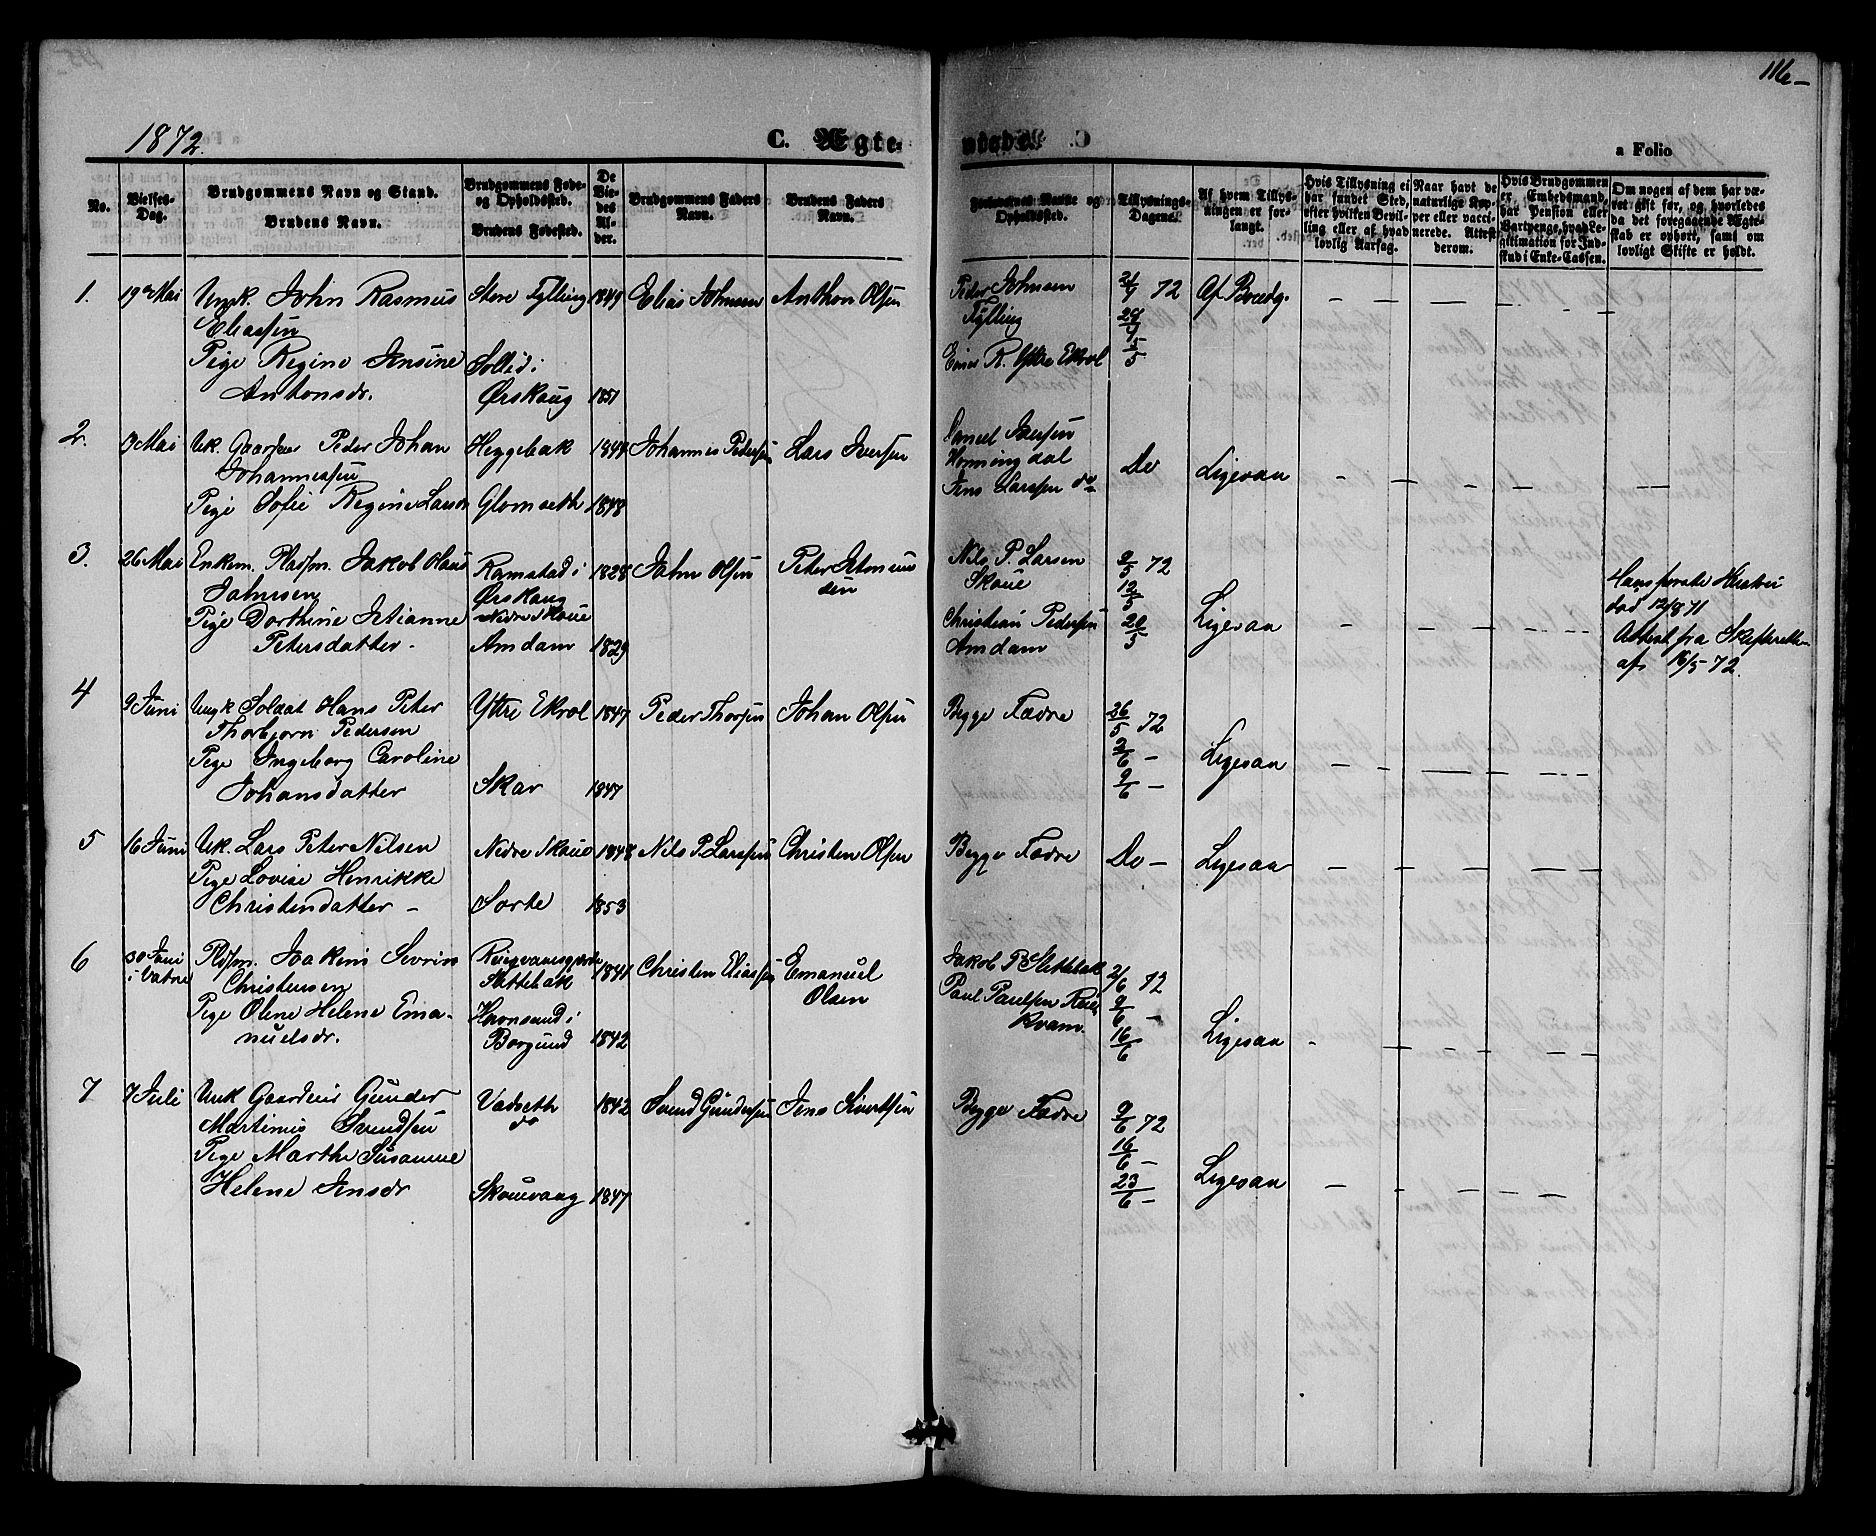 116-
1872.
C. Ægte-
viede.
a Folio
No.
Vielses-Dag.
Brudgommens Navn og Stand.
Brudens Navn.
Brudgommens Føde- og Opholdsted.
Brudens Fødested.
De Viedes Alder.
Brudgommens Faders Navn.
Brudens Faders Navn.
Forlovernes Navne og Opholdsted.
Tillysnings-Dagene.
Af hvem Tillysningen er forlangt.
Hvis Tillysning ei har fundet Sted, efter hvilken Bevilling eller af hvad lovlig Aarsag.
Naar havt de naturlige Kopper eller vaccinerede. Attest derom.
Hvis Brudgommen er Embedsmand, har Pension eller Vartpenge, hvad Legitimation for Indskud i Enke-Cassen.
Om nogen af dem har været gift før, og hvorledes da det foregaaende Ægteskab er ophørt, samt om lovligt Skifte er holdt.
1. 19de Mai Ungk. John Rasmus Store Fylling 1849 Elias Johnsen Anthon Olsen Peder Johnsen 21/4 72 Af Brudg.
Eliassen Fylling 28/4
Pige Regine Jensine Solli i Einar R. Ytre Ekrol 5/5
Antonsdr. Ørskoug 1851
2. Mai Uk. Gaardm Peder Johan Heggebak 1844 Johannes Pedersen Lars Iversen Daniel Iversen Do Ligesaa
Johannessen Honningdal
Pige Sofie Regine Larsdr Glomseth 1848 Jens Larssen do
3. 26 Mai Enkem. Pladsm. Jakob Olaus Ramstad i 1828 John Olsen Peter Nils P. Larsen 2/5 72 Ligesaa
Johnsen Ørskoug Skoue 12/5
Pige Dorthine Nedre Skoue Christian Pedersen 20/5
Petersdatter. Amdam 1829 Amdam
død 12/8 71
Attest fra Skifteretten
af 16/5 72.
4 9 Juni Ungk Soldat Hans Peter Yttre Ekrol 1847 Peder Thorsen Johan Olsen Begge Fædre 26/5 72 Ligesaa
Thorbjørn Pedersen 2/6 -
Pige Ingeborg Caroline 9/6 -
Johansdatter Skar 1847
5 16 Juni Uk. Lars Peter Nilsen Nedre Skoue 1848 Nils P. Larssen Christen Olsen Begge Fædre Do - Ligesaa
Pige Lovise Henrikke
Christendatter - Sorte 1853
6 30 Juni Pldsm. Joakim Sevrin 1841 Christen Eliassen Emanuel Jakob P Slettebak 2/6 72 Ligesaa
i Vatne Christensen Slettebak Olsen Paul Paulsen 9/6 -
Pige Oline Helene Ema- Havnsund i Kvam. 16/6
nuelsdr. Borgund 1842
7 7 Juli Unk Gaardeier Gunder Vadseth 1842 Svend Gundersen Jens Sivertsen Begge Fædre 9/6 72 Ligesaa
Martinus Svendsen do 16/6 -
Pige Marthe Susanne 23/6 -
Helene Jensdr Skouevaag 1847